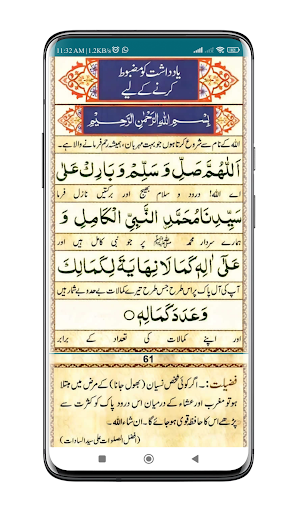 11:32 AM | 1.2KB/s
یادداشت کو مضبوط
کرنے کے لیے
بِسْمِ اللهِ الرَّحْمٰنِ الرَّحِيْمِ
اللہ کے نام سے شروع کرتا ہوں جو بہت مہربان، ہمیشہ رحم فرمانے والا ہے۔
اَللّٰهُمَّ صَلِّ وَ سَلِّمْ وَ بَارِكْ عَلٰى
اے اللہ! درود و سلام بھیج اور برکتیں نازل فرما
سَيِّدِنَا مُحَمَّدِ النَّبِيِّ الْكَامِلِ وَ
ہمارے سردار محمد ﷺ پر جو نبی کامل ہیں اور
عَلٰٓى اٰلِهٖ كَمَا لَا نِهَايَةَ لِكَمَالِكَ
آپ کی آل پاک پر اس طرح جس طرح تیرے کمالات بے حد و بے شمار ہیں
وَ عَدَدَ كَمَالِهٖ
اور اپنے کمالات کی تعداد کے برابر
61
فضیلت:۔ اگر کوئی شخص نسیان (بھول جانا) کے مرض میں مبتلا
ہو تو مغرب اور عشاء کے درمیان اس درود پاک کو کثرت سے
پڑھے اس کا حافظہ قوی ہو جائے گا۔ ان شاء اللہ۔
(افضل الصلوات علی سید السادات)